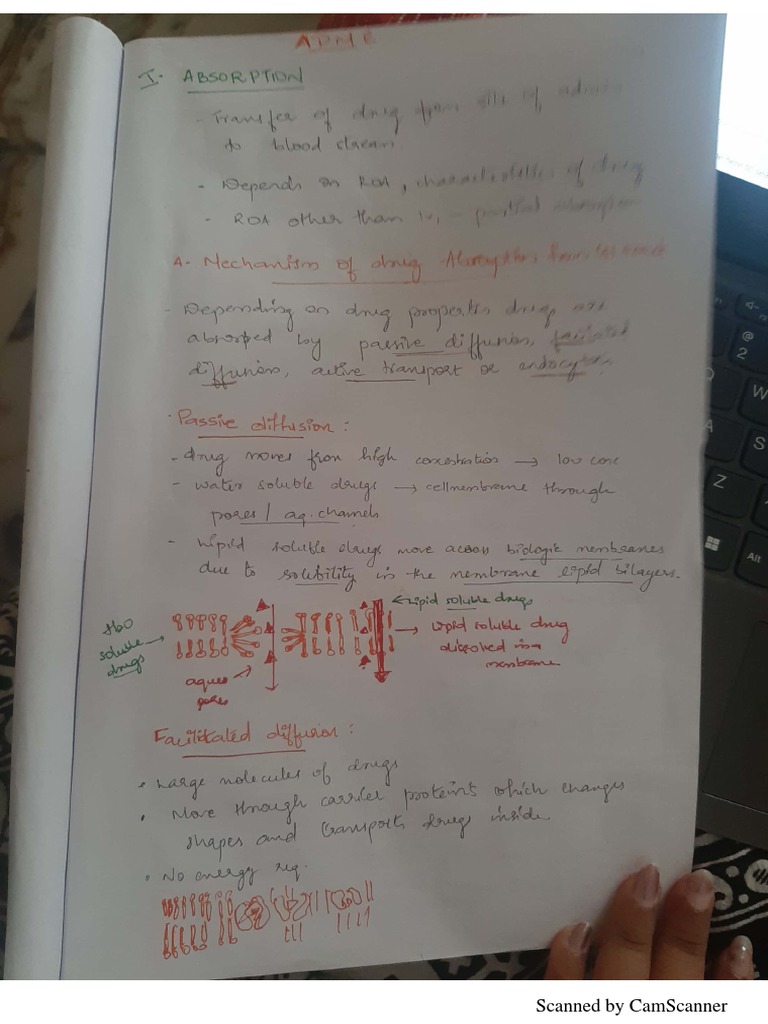 ADME
I. ABSORPTION
- Transfer of drug from site of admin
to blood stream
- Depends on ROA, characteristics of drug
- ROA other than IV, - partial absorption
A. Mechanism of drug Absorption from
- Depending on drug properties drugs are
absorbed by passive diffusion,
diffusion, active transport or endocytosis
Passive diffusion :
- drug moves from high concentration → low conc
- water soluble drugs → cellmembrane through
pores / aq. channels
- Lipid soluble drugs move across biologic membranes
due to solubility in the membrane lipid bilayers.
← Lipid soluble drugs
H2O
soluble
drugs
→ Lipid soluble drug
dissolved in a
membrane
aques
pores
Facilitated diffusion :
• Large molecules of drugs
• Move through carrier proteins which changes
shapes and transports drugs inside
• No energy req.
Scanned by CamScanner
@
2
W
A
S
Z
Alt